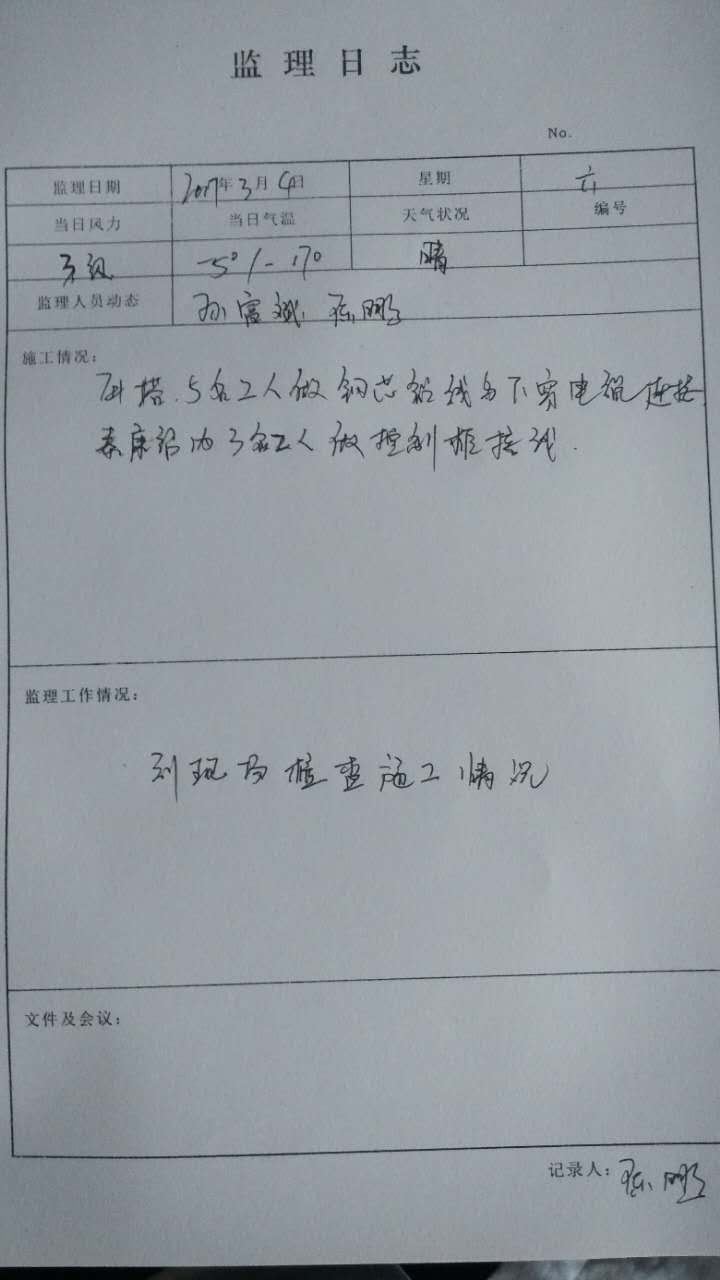 监理日志
No.
监理日期 2017年3月4日 星期 六
当日风力 当日气温 天气状况 编号
3级 -5°/-17° 晴
监理人员动态 孙富斌 陈鹏
施工情况：
塔.5名工人做钢芯铝线与下穿电缆连接.
泰康站内3名工人做控制柜接线.
监理工作情况：
到现场检查施工情况
文件及会议：
记录人：陈鹏